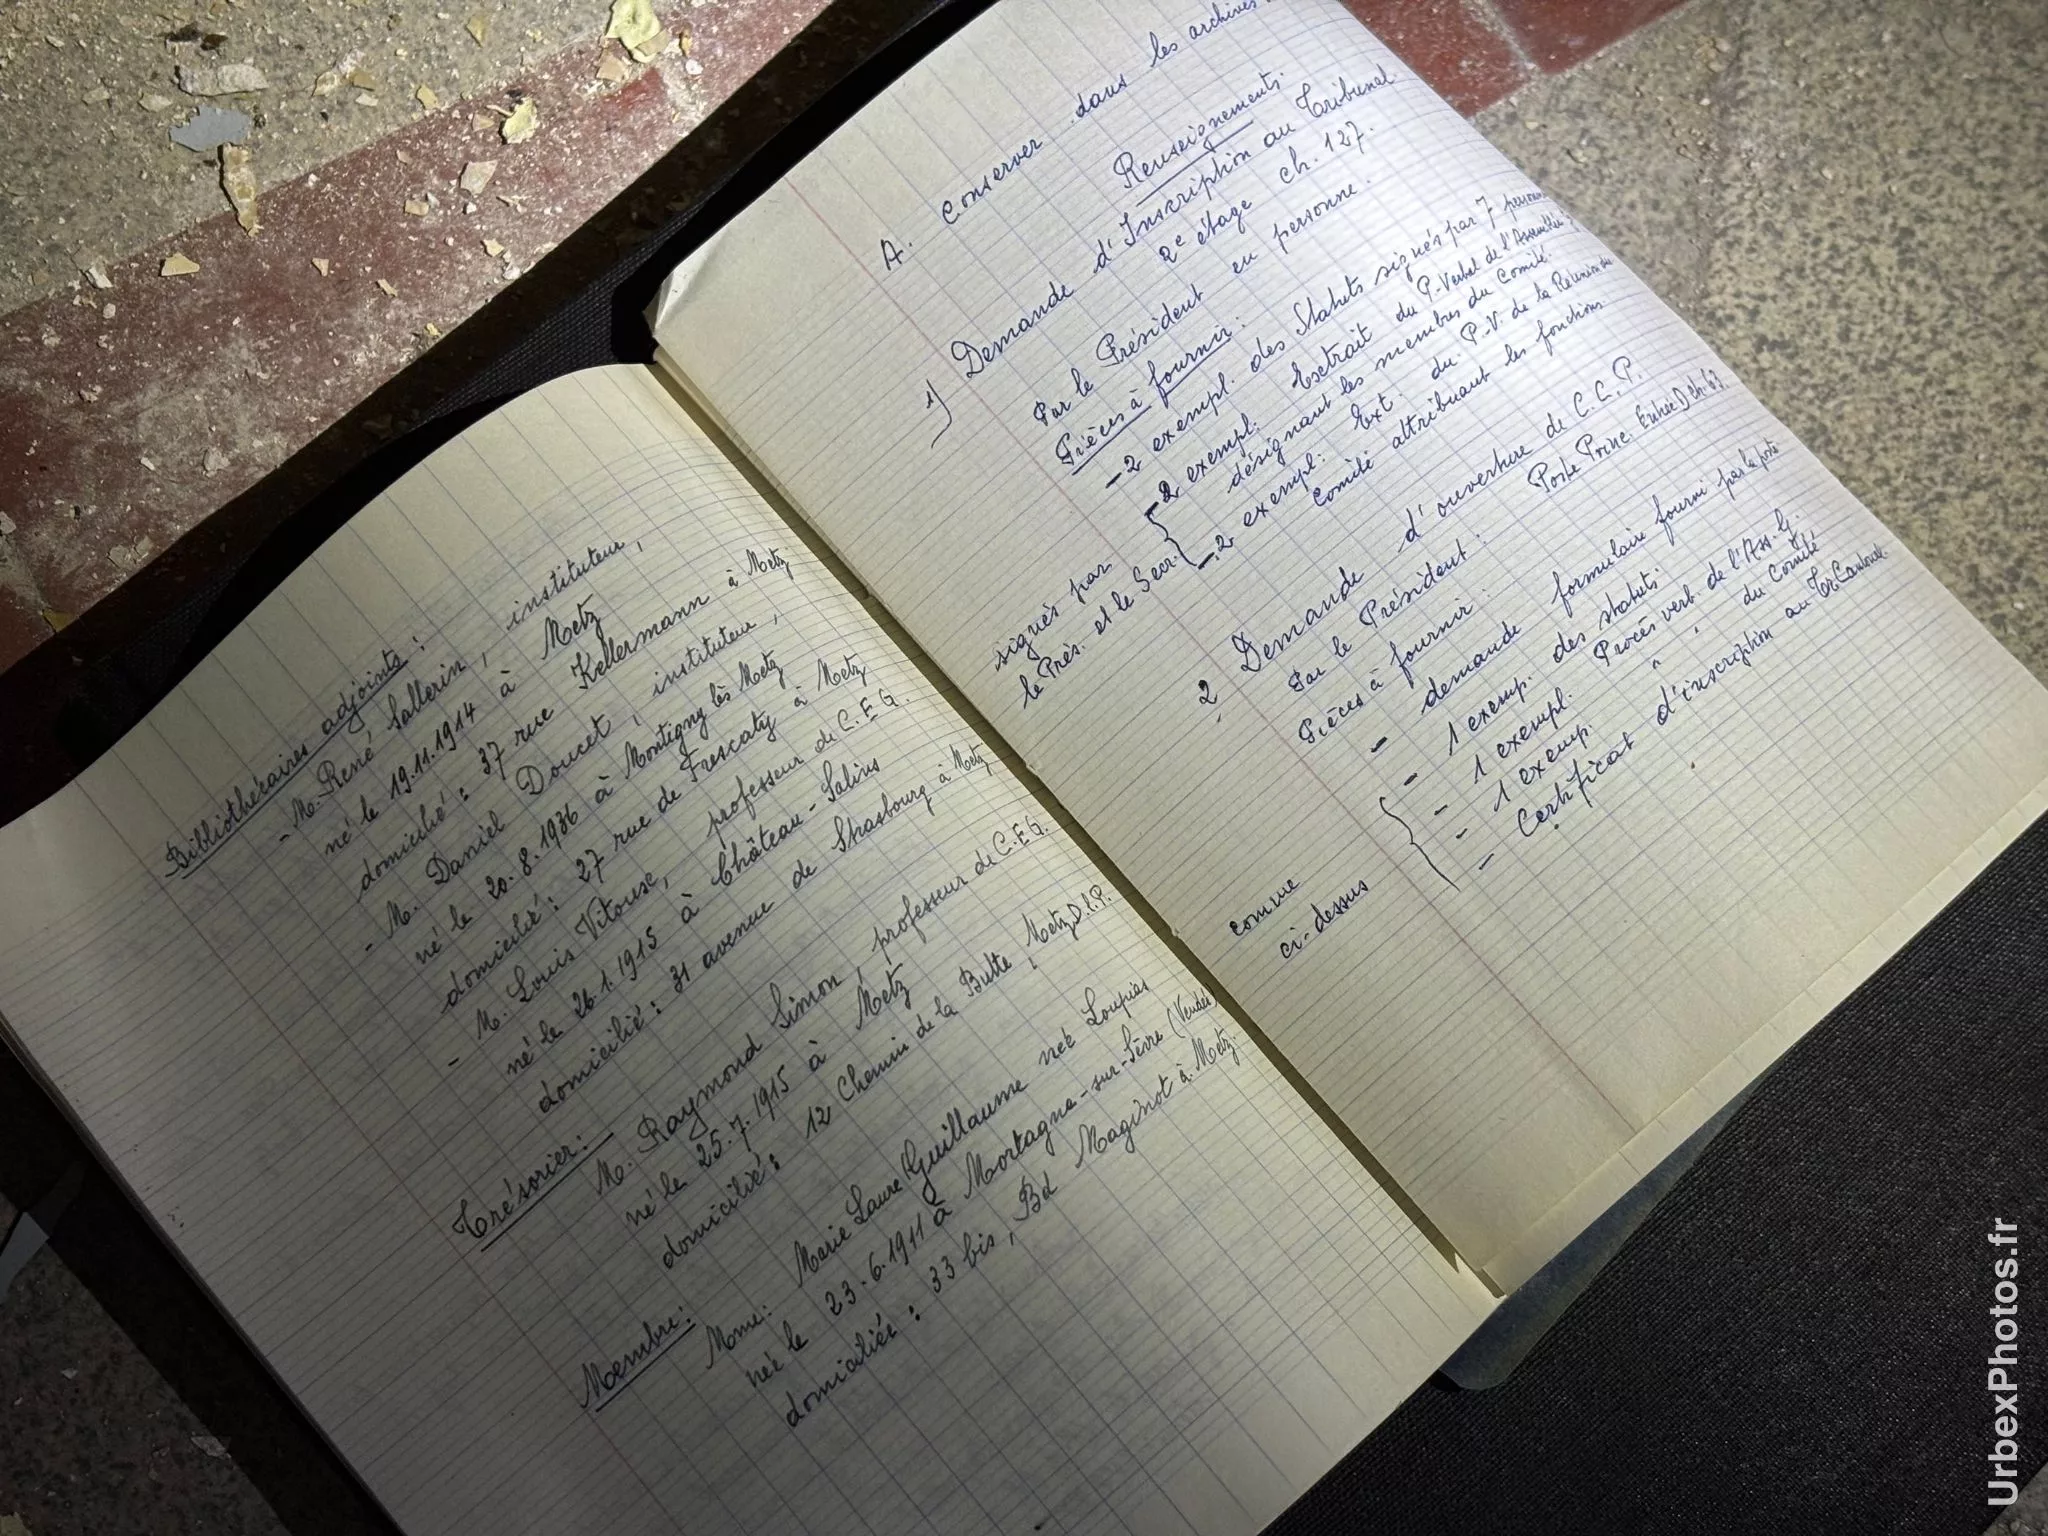 Bibliothécaires adjoints :
- M. René Sallerin, instituteur,
né le 19.11.1914 à Metz
domicilié : 37 rue Kellermann à Metz
- M. Daniel Doucet, instituteur,
né le 20.8.1936 à Montigny lès Metz
domicilié : 27 rue de Frescaty à Metz
- M. Louis Vitouse, professeur de C.E.G.
né le 26.1.1915 à Château-Salins
domicilié : 31 avenue de Strasbourg à Metz
Trésorier :
M. Raymond Simon, professeur de C.E.G.
né le 25.7.1915 à Metz
domicilié : 12 Chemin de la Butte, Metz D.l.P.
Membre :
Mme : Marie Laure Guillaume née Loupias
née le 23.6.1911 à Mortagne-sur-Sèvre (Vendée)
domiciliée : 33 bis, Bd Maginot à Metz.
A. conserver dans les archives
Renseignements.
1) Demande d'Inscription au Tribunal
2e étage ch. 127.
Par le Président en personne.
Pièces à fournir :
- 2 exempl. des Statuts signés par 7
- 2 exempl: Extrait du P-Verbal de l'Assemblée
désignant les membres du Comité.
- 2 exempl: Ext. du P.-V. de la Réunion du
Comité attribuant les fonctions.
signés par
le Prés. et le Secr.
2 Demande d'ouverture de C.C.P.
Par le Président : Poste Princ. Entrée D ch. 63.
Pièces à fournir :
- demande formulaire fourni par la poste
- 1 exemp. des statuts.
- 1 exempl. Procès verb. de l'Ass. G.
- 1 exemp. " " du Comité
- Certificat d'inscription au Tr. Cantonal.
comme
ci-dessus
UrbexPhotos.fr